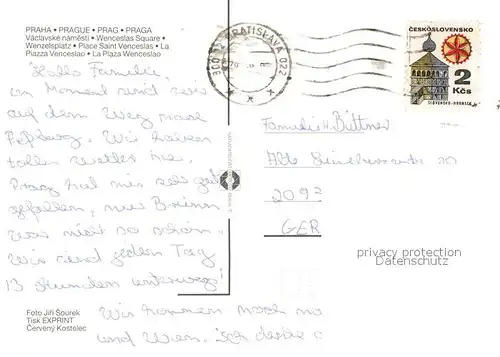 PRAHA • PRAGUE • PRAG • PRAGA
Václavské náměstí • Wenceslas Square •
Wenzelsplatz • Place Saint Venceslas • La
Piazza Venceslao • La Plaza Wenceslao
Hallo Familie,
im Moment sind wir
auf dem Weg nach
Preßburg. Wir haben
tolles Wetter hie.
Prag hat mir sehr gut
gefallen, nur Brünn
war nicht so schön.
Wir sind jeden Tag
13 Stunden unterwegs!
Wir kommen noch na
und Wien. Ich denke
Foto Jiří Šourek
Tisk EXPRINT
Červený Kostelec
BRATISLAVA 022
ČESKOSLOVENSKO
2
Kčs
SLOVENSKO-HRONSEK
Familie H. Büttner
Alte
2092
GER
privacy protection
Datenschutz